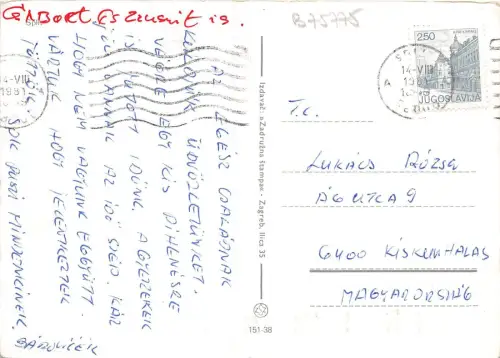 GÁBORT És Zsuzsit is.
B75775
Split
AZ EGÉSZ CSALÁDNAK
KÜLDJÜK ÜDVÖZLETÜNKET.
VÉGRE EGY KIS PIHENÉSRE
IS JUTOTT IDŐNK. A GYEREKEK
JÓL VANNAK AZ IDŐ SZÉP. KÁR
HOGY NEM VAGYUNK EGGYÜTT.
VÁRTUK HOGY JELENTKEZTEK
SOK PUSZI MINDENKINEK.
14-VIII
1981
Izdavač: »Zadružna štampa« - Zagreb, Ilica 35
151-38
2.50
JUGOSLAVIJA
14-VIII
A
T.C.
LUKÁCS RÓZSA
ÁG UTCA 9
6400 KISKUNHALAS
MAGYARORSZÁG